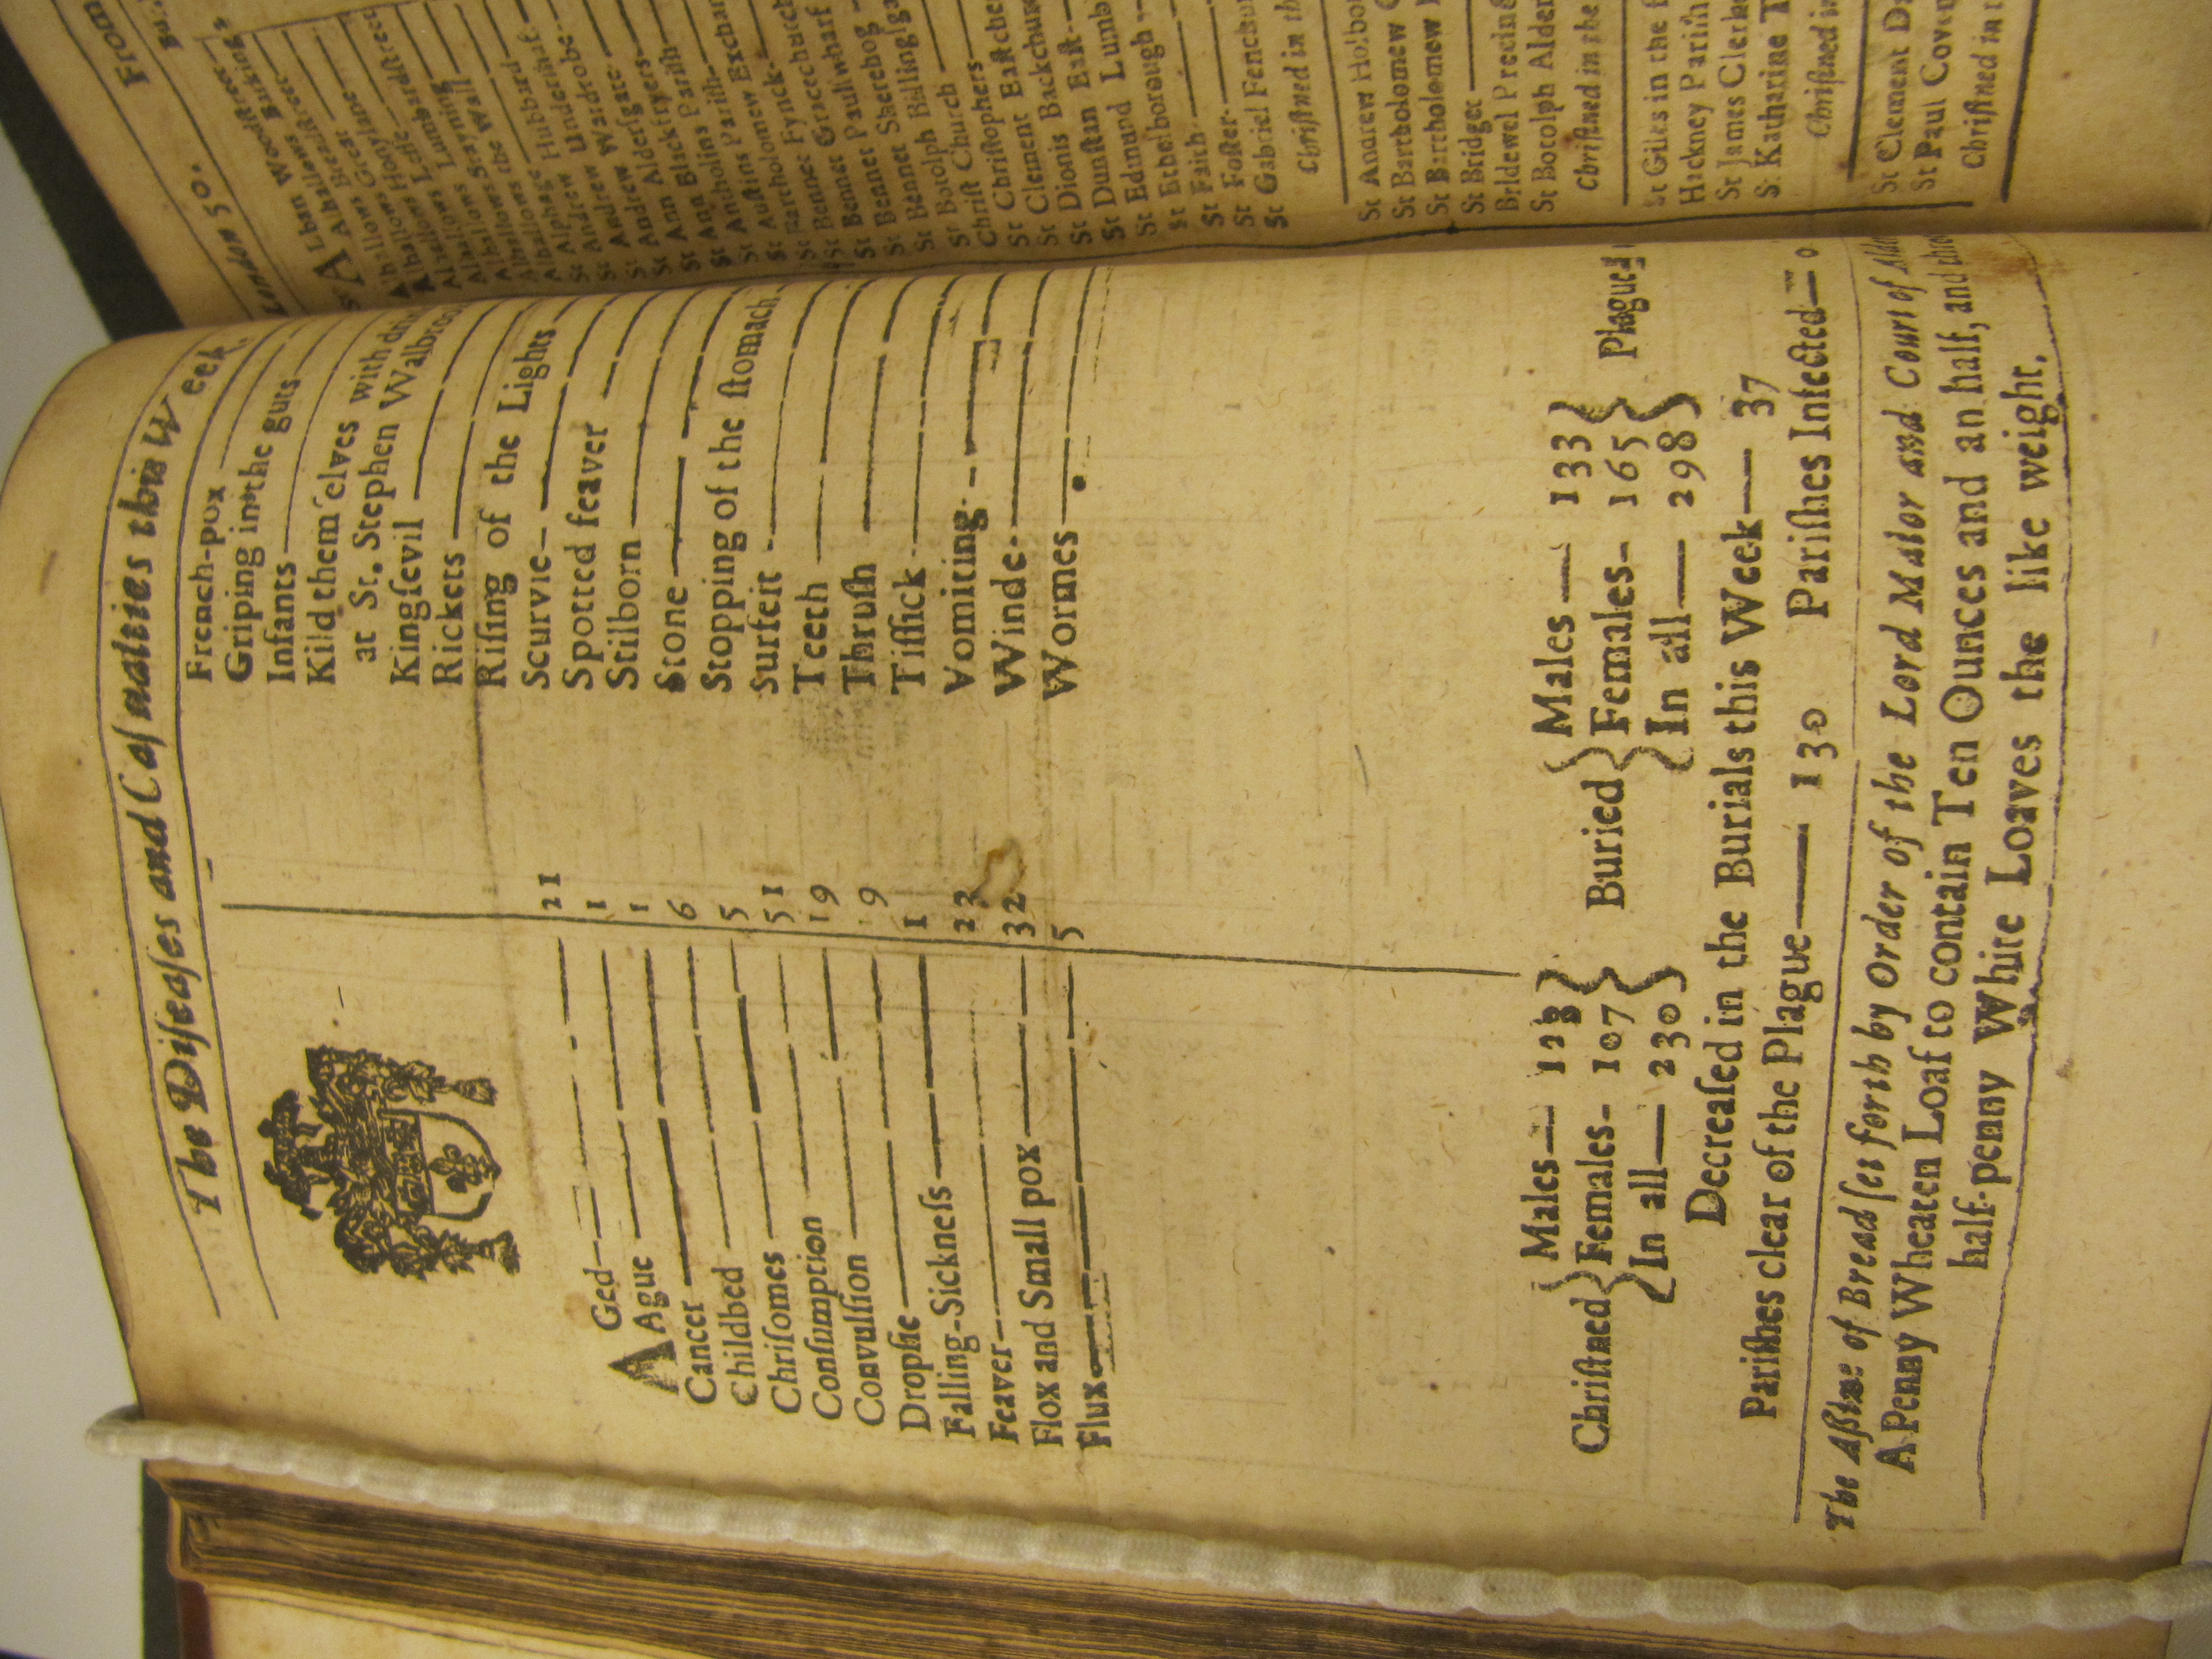 The Diseaſes and Caſualties this Week.
AGed 21
Ague 1
Cancer 1
Childbed 6
Chriſomes 5
Conſumption 51
Convulſion 19
Dropſie 9
Falling-Sickneſs 1
Feaver 23
Flox and Small pox 32
Flux 5
French-pox
Griping in the guts
Infants
Kild themſelves with
at St. Stephen
Kingſevil
Rickets
Riſing of the Lights
Scurvie
Spotted feaver
Stilborn
Stone
Stopping of the ſtomach
Surfeit
Teeth
Thruſh
Tiſſick
Vomiting
Winde
Wormes
Chriſtned { Males — 123
Females - 107
In all — 230 }
Buried { Males — 133
Females - 165
In all — 298 }
Plague
Decreaſed in the Burials this Week — 37
Pariſhes clear of the Plague — 130 Pariſhes Infected — 0
The Aſsize of Bread ſet forth by Order of the Lord Maior and Court of
A Penny Wheaten Loaf to contain Ten Ounces and an half, and three
half-penny White Loaves the like weight.
London 50. From
St ALban Woodſtreet
Alhallows Barking
Alhallows Breadſtreet
Alhallows Great
Alhallows Honylane
Alhallows Leſſe
Alhallows Lumbardſtreet
Alhallows Stayning
Alhallows the Wall
Alphage
Andrew Hubbard
St Andrew Underſhaft
St Andrew Wardrobe
St Ann Alderſgate
St Ann Blackfryers
St Antholins Pariſh
St Auſtins Pariſh
St Bartholomew Exchan
St Bennet Fynck
St Bennet Gracechurch
St Bennet Paulſwharf
St Bennet Sherehog
St Botolph Billingſga
Chriſt Church
St Chriſtophers
St Clement Eaſtche
St Dionis Backchur
St Dunſtan Eaſt
St Edmund Lumb
St Ethelborough
St Faith
St Foſter
St Gabriel Fenchur
Chriſtned in th
St Andrew Holbo
St Bartholomew G
St Bartholomew L
St Bridget
Bridewel Precin
St Botolph Alder
Chriſtned in the
St Giles in the f
Hackney Pariſh
St James Clerke
St Katharine T
Chriſtned in
St Clement D
St Paul Coven
Chriſtned in t